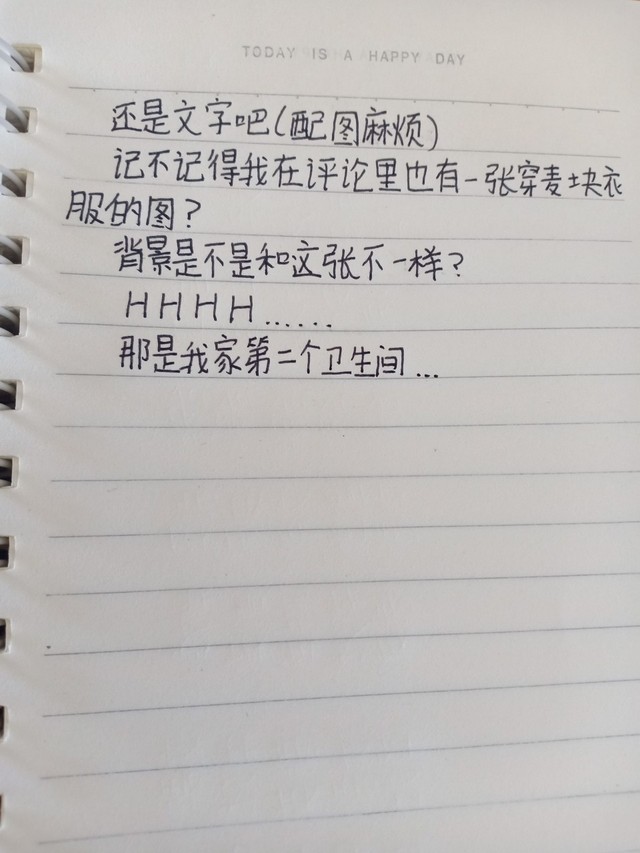 TODAY IS A HAPPY DAY
还是文字吧(配图麻烦)
记不记得我在评论里也有一张穿麦块衣
服的图?
背景是不是和这张不一样?
HHHH......
那是我家第二个卫生间...